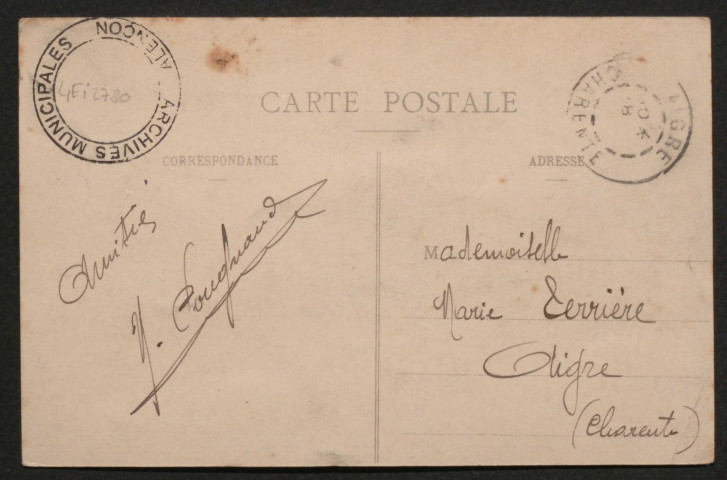 ARCHIVES MUNICIPALES ALENÇON
4Fi2780
CARTE POSTALE
AIGRE
CHARENTE
CORRESPONDANCE
ADRESSE
Amitié
Mademoiselle
Marie Terrière
Aigre
(Charente)